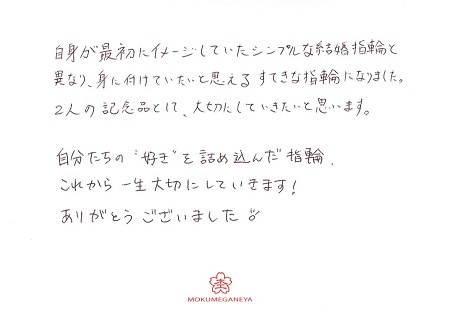 自身が最初にイメージしていたシンプルな結婚指輪と
異なり、身に付けていたいと思える すてきな指輪になりました。
2人の記念品として、大切にしていきたいと思います。
自分たちの〝好き〟を詰め込んだ指輪、
これから一生大切にしていきます！
ありがとうございました
MOKUMEGANEYA